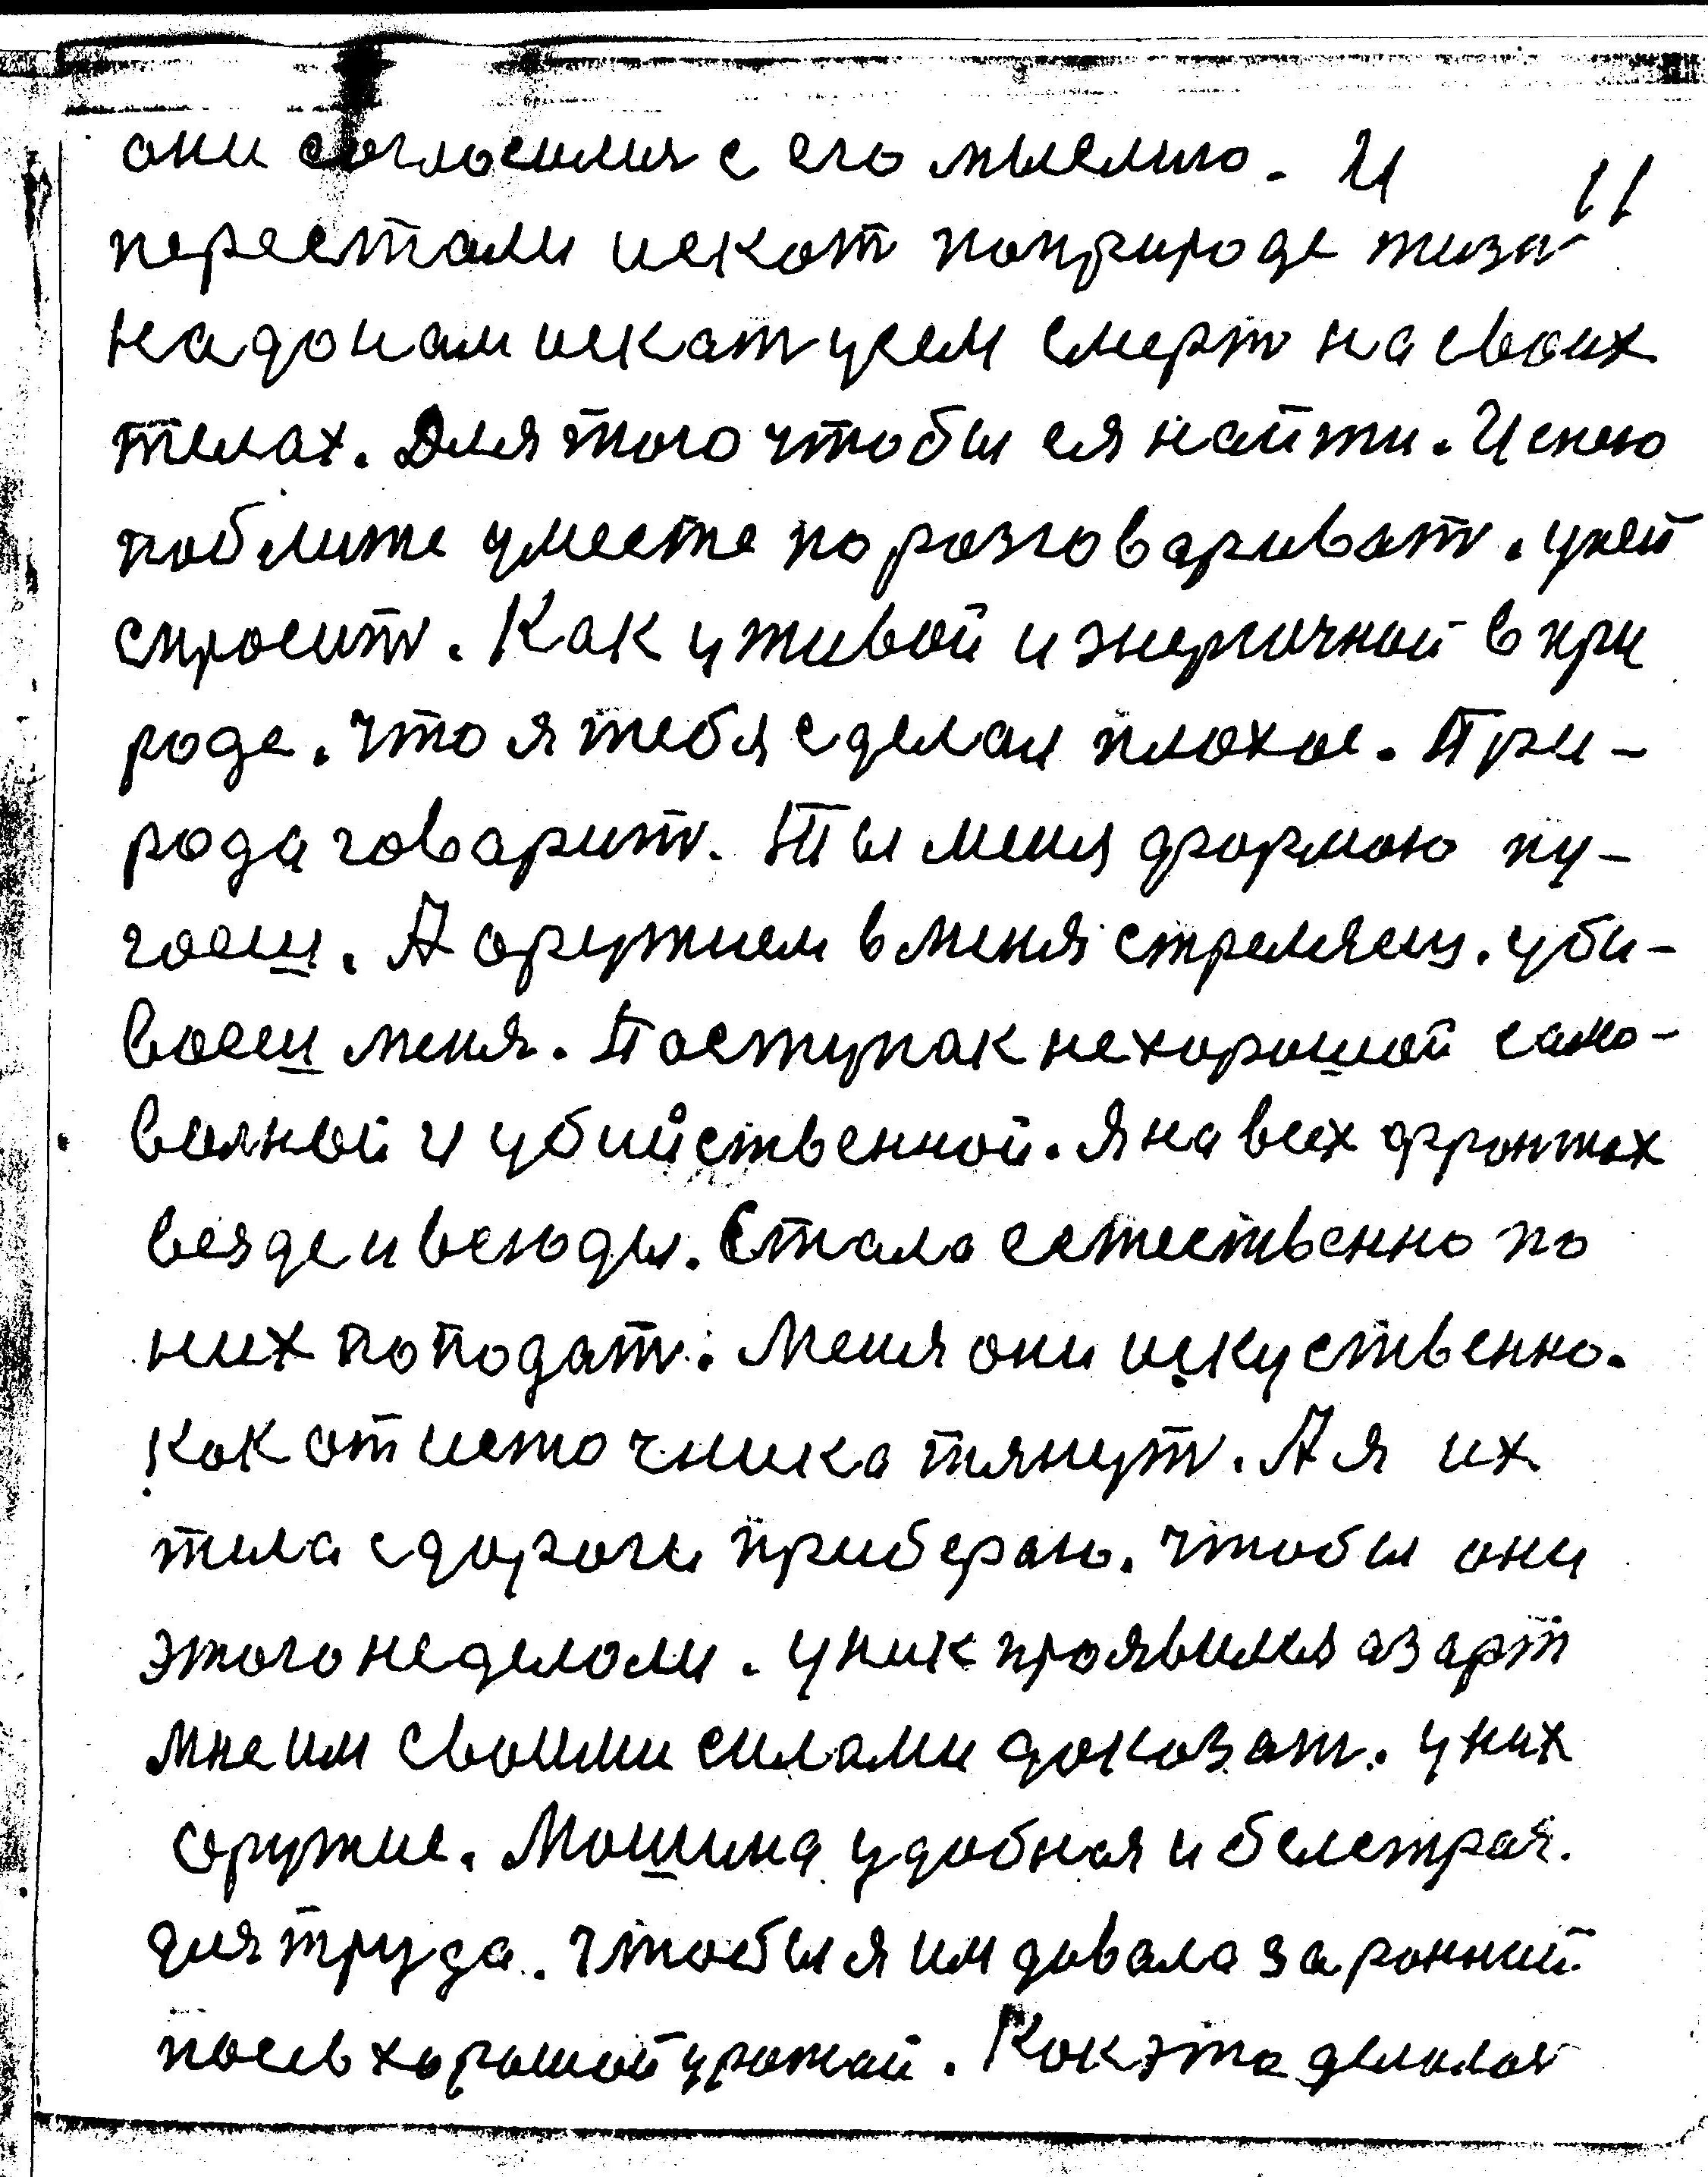 они согласился с его мыслию. И 11
перестали искат поприроде жизн
надо нам искат усем смерт на своих
телах. Для того чтобы ея найти. И снею
поближе уместе поразговариват. уней
спросит. Как у живой и энергичной в при
роде. что я тебя сделал плохое. При-
рода говарит. Ты меня формою пу-
гаеш. А оружием в меня стреляеш. уби-
ваеш меня. Поступак нехорошай само-
волной и убийственной. Я на всих фронтах
везде и всюды. Стала естественно по
них поподат. Меня они искуственно.
Как от источника тянут. А я их
тила сдороги прибераю. чтобы они
этого неделали. у них проявился азарт
мне им своими силами доказат. у них
оружие. Машина удобная и быстрая.
для труда. чтобы я им довала за ранний
посев хорошай урожай. Как эта делалас